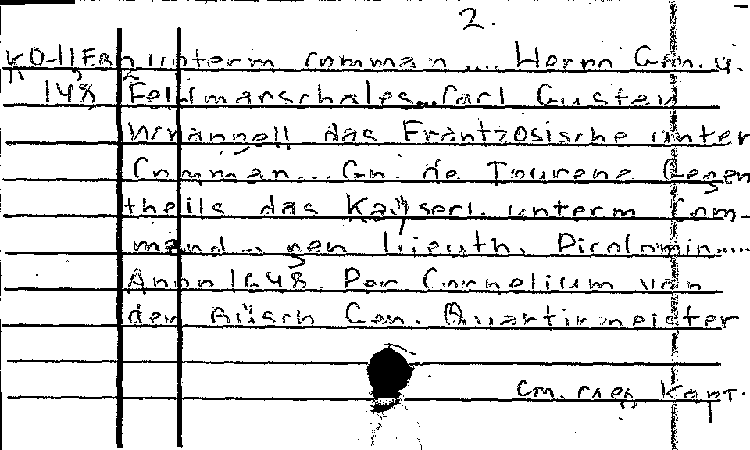 2.
unterm Comman.... Herrn Gen. u.
148 Feldmarschales.. Carl Gustav
Wrangell das Frantzösische unter
Comman... Gn. de Tourene Gegen
theils das Kaÿserl. unterm Com-
mand .. gen lieuth. Picolomin.....
Anno 1648. Per Cornelium von
den Büsch Gen. Quartirmeister
Kart.